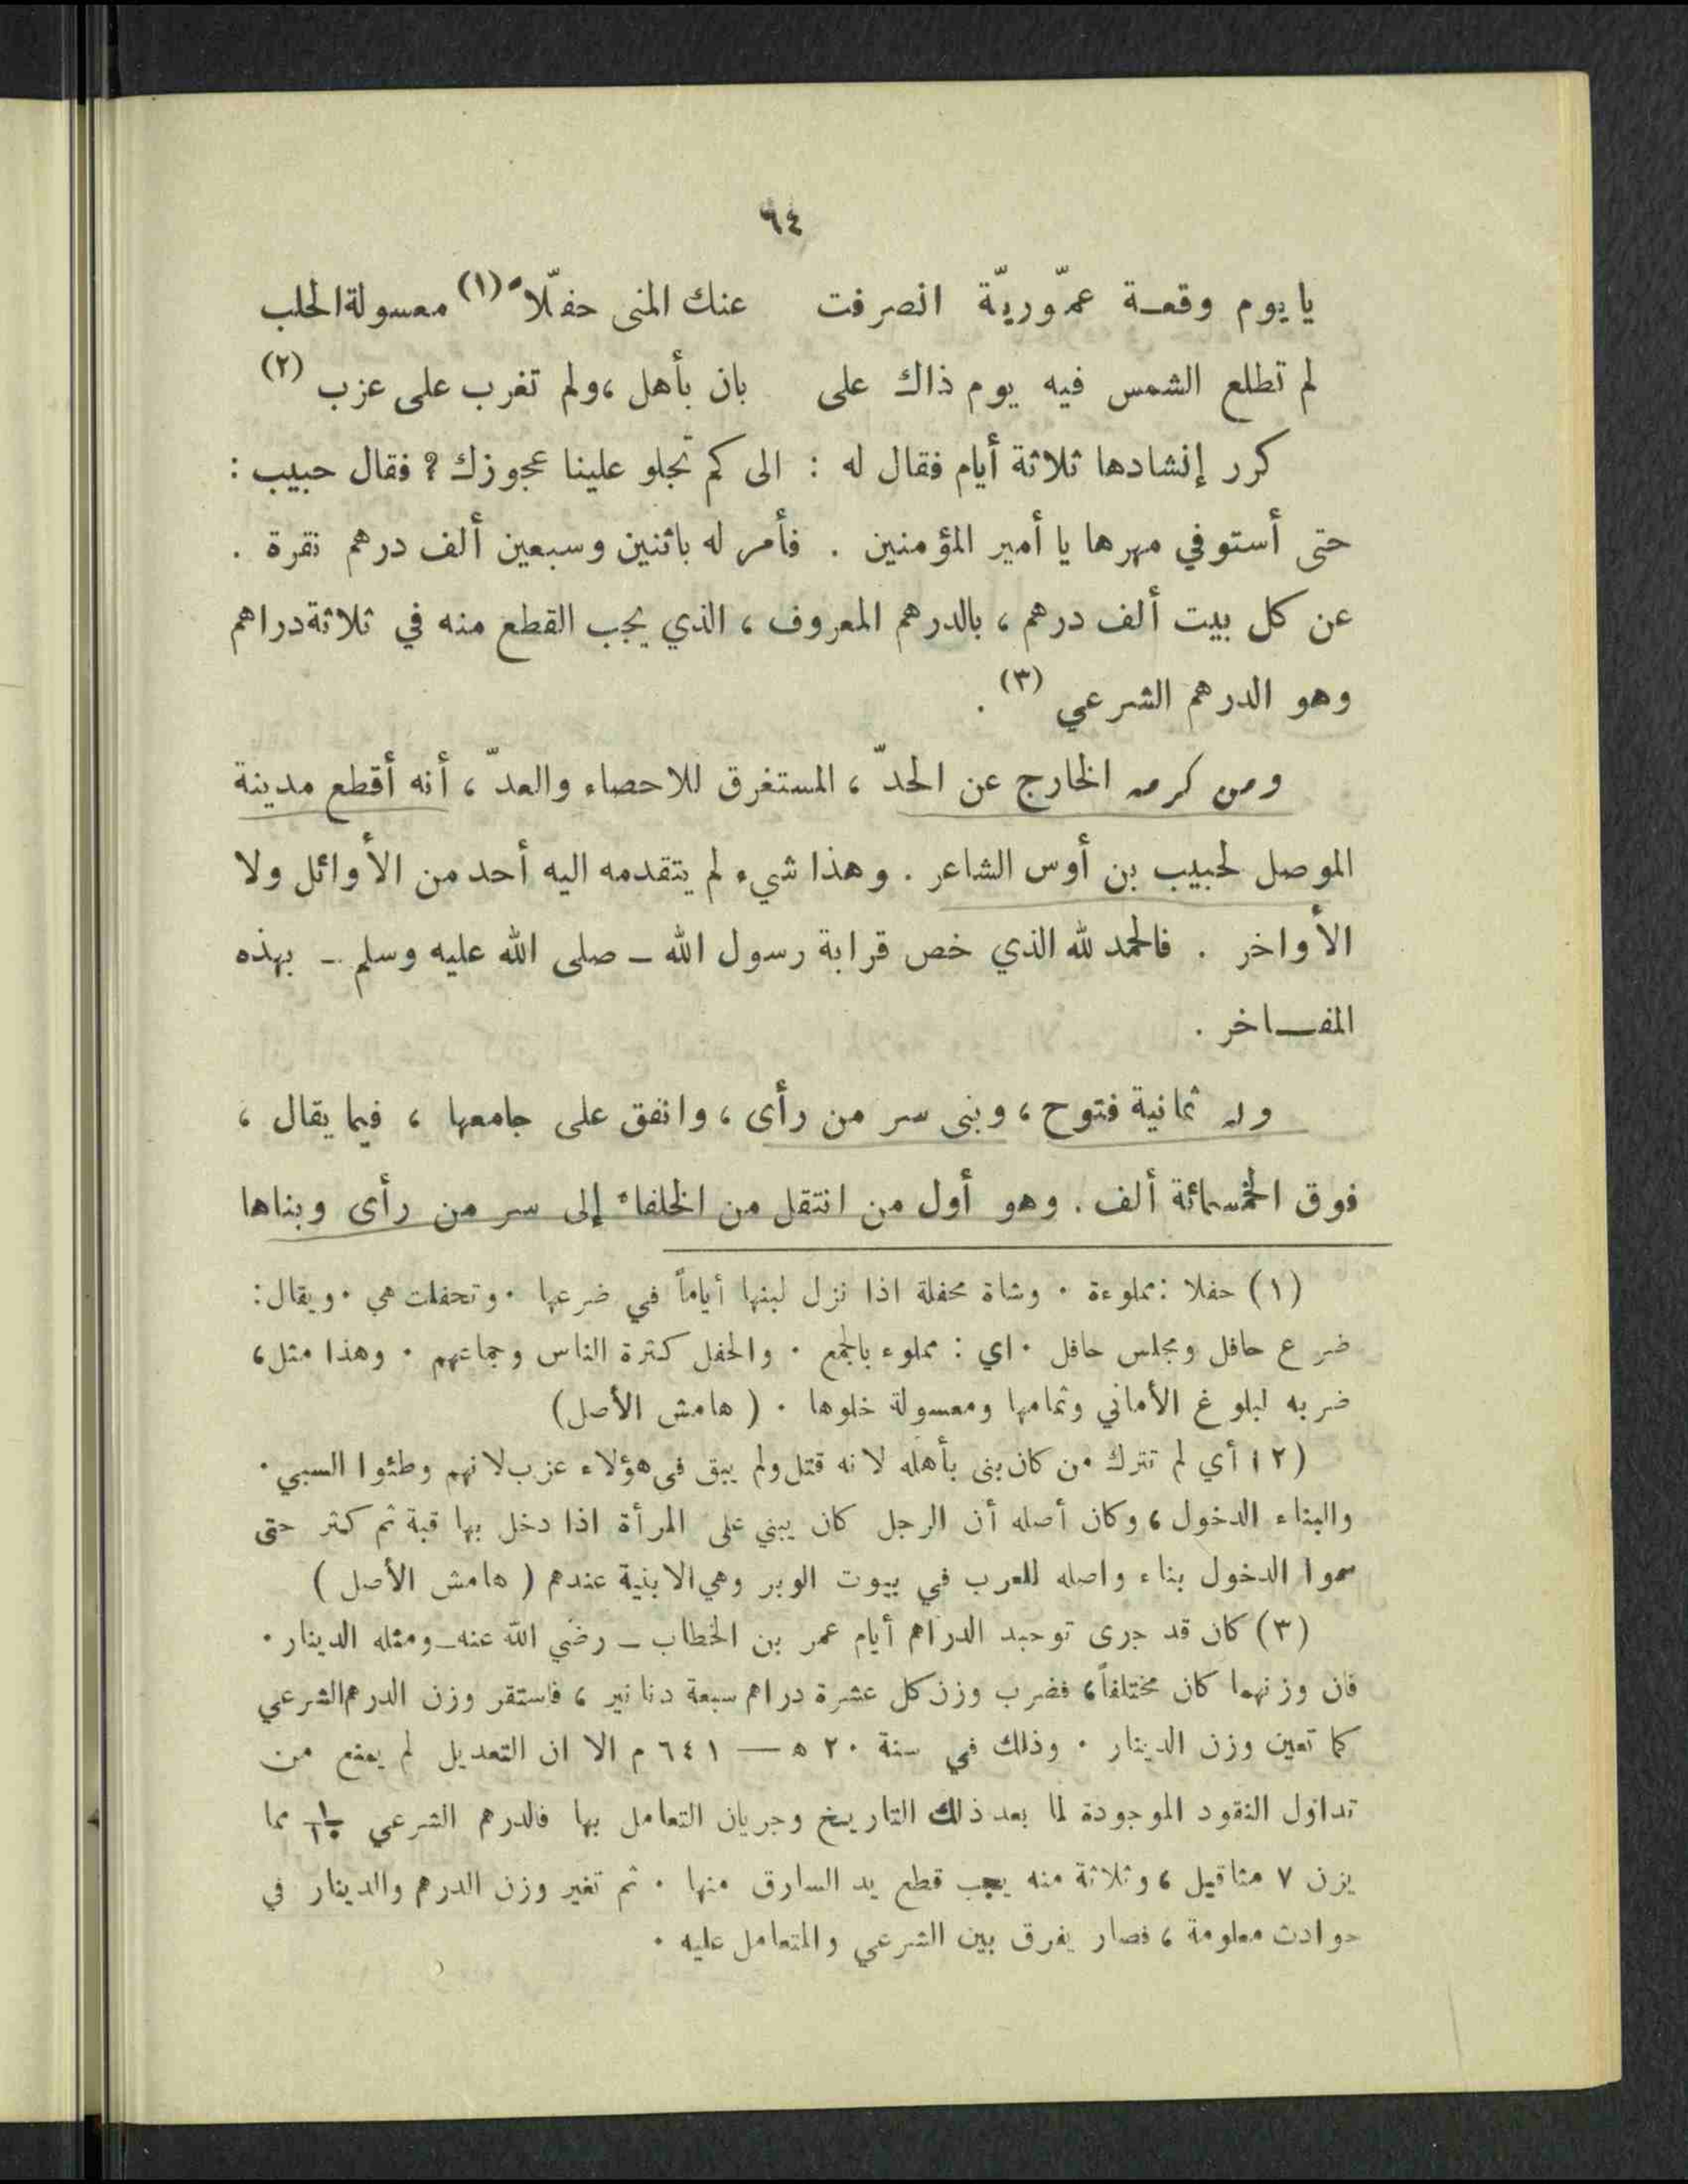 ٦٤
يا يوم وقعة عمّوريّة انصرفت عنك المنى حفلّاً (١) معسولة الحلب
لم تطلع الشمس فيه يوم ذاك على بان بأهل ، ولم تغرب على عزب (٢)
كرر إنشادها ثلاثة أيام فقال له : الى كم تجلو علينا عجوزك ؟ فقال حبيب :
حتى أستوفي مهرها يا أمير المؤمنين . فأمر له باثنين وسبعين ألف درهم نقرة .
عن كل بيت ألف درهم ، بالدرهم المعروف ، الذي يجب القطع منه في ثلاثة دراهم
وهو الدرهم الشرعي (٣) .
ومن كرمه الخارج عن الحدّ ، المستغرق للاحصاء والعدّ ، أنه أقطع مدينة
الموصل لحبيب بن أوس الشاعر . وهذا شيء لم يتقدمه اليه أحد من الأوائل ولا
الأواخر . فالحمد لله الذي خص قرابة رسول الله ـ صلى الله عليه وسلم ـ بهذه
المفـاخر .
وله ثمانية فتوح ، وبنى سر من رأى ، وانفق على جامعها ، فيما يقال ،
فوق الخمسمائة ألف . وهو أول من انتقل من الخلفاء إلى سر من رأى وبناها
(١) حفلا : مملوءة . وشاة محفلة اذا نزل لبنها أياماً في ضرعها . وتحفلت هي . ويقال :
ضرع حافل ومجلس حافل . اي : مملوء بالجمع . والحفل كثرة الناس وجماعتهم . وهذا مثل ،
ضربه لبلوغ الأماني وتمامها ومعسولة خلوها . ( هامش الأصل )
(٢) أي لم تترك من كان بنى بأهله لانه قتل ولم يبق في هؤلاء عزب لانهم وطئوا السبي .
والبناء الدخول ، وكان أصله أن الرجل كان يبني على المرأة اذا دخل بها قبة ثم كثر حتى
سموا الدخول بناء واصله للعرب في بيوت الوبر وهي الابنية عندهم ( هامش الأصل )
(٣) كان قد جرى توحيد الدراهم أيام عمر بن الخطاب ـ رضي الله عنه ـ ومثله الدينار .
فان وزنهما كان مختلفاً ، فضرب وزن كل عشرة دراهم سبعة دنانير ، فاستقر وزن الدرهم الشرعي
كما تعين وزن الدينار . وذلك في سنة ٢٠ ه — ٦٤١ م الا ان التعديل لم يمنع من
تداول النقود الموجودة لما بعد ذلك التاريخ وجريان التعامل بها فالدرهم الشرعي ١/١٠ مما
يزن ٧ مثاقيل ، وثلاثة منه يجب قطع يد السارق منها . ثم تغير وزن الدرهم والدينار في
حوادث معلومة ، فصار يفرق بين الشرعي والمتعامل عليه .